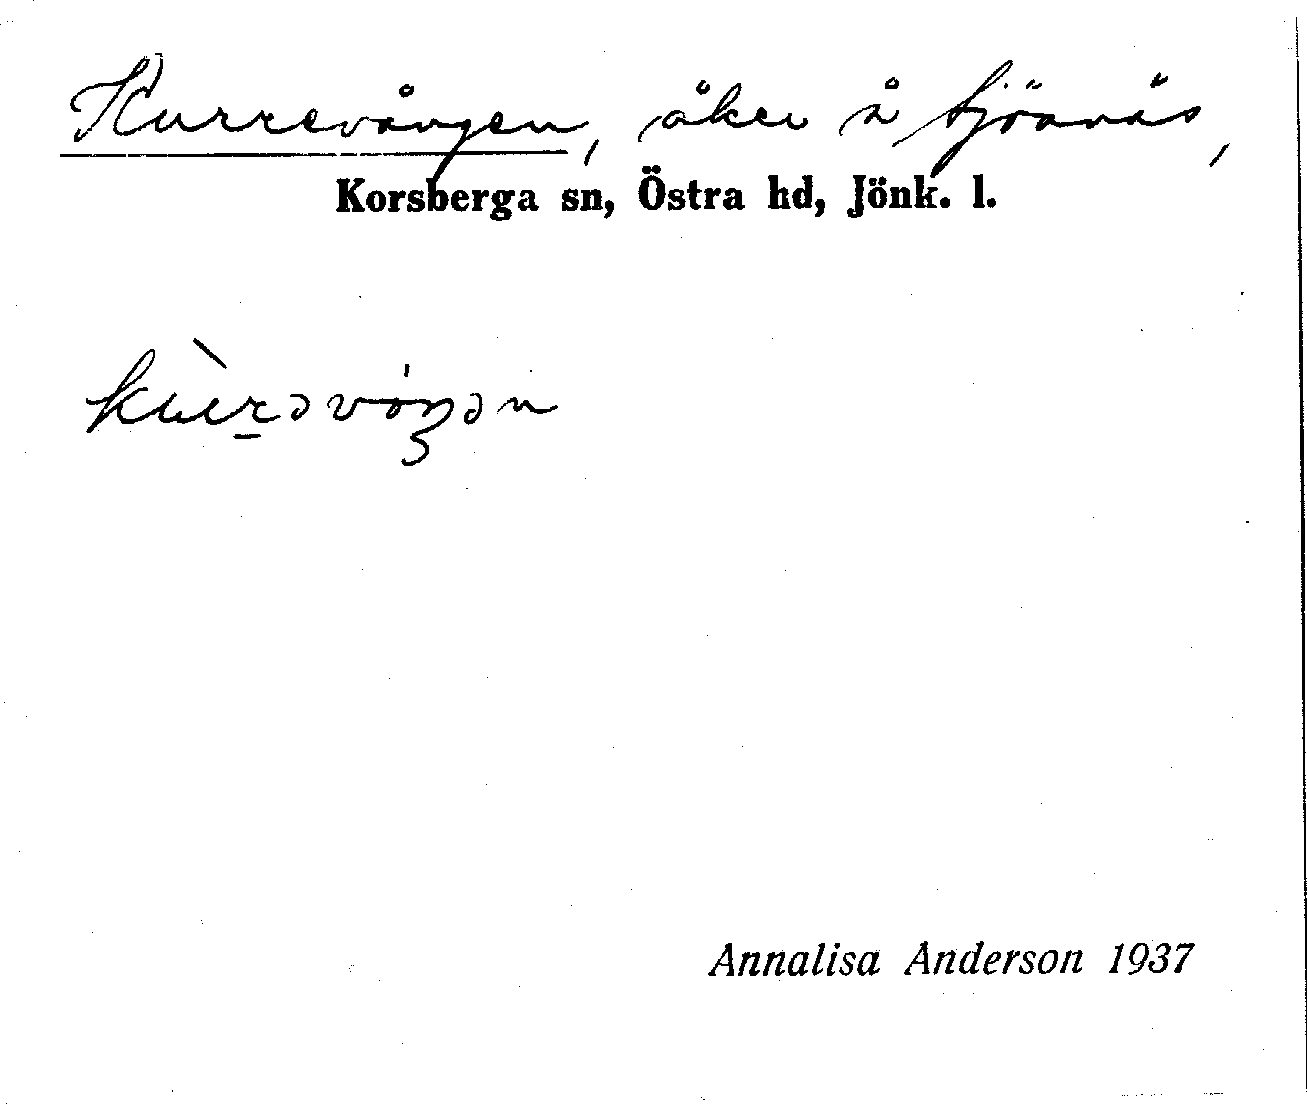 Kurrevången, åker å Sjöanäs,
Korsberga sn, Östra hd, Jönk. l.
Annalisa Anderson 1937